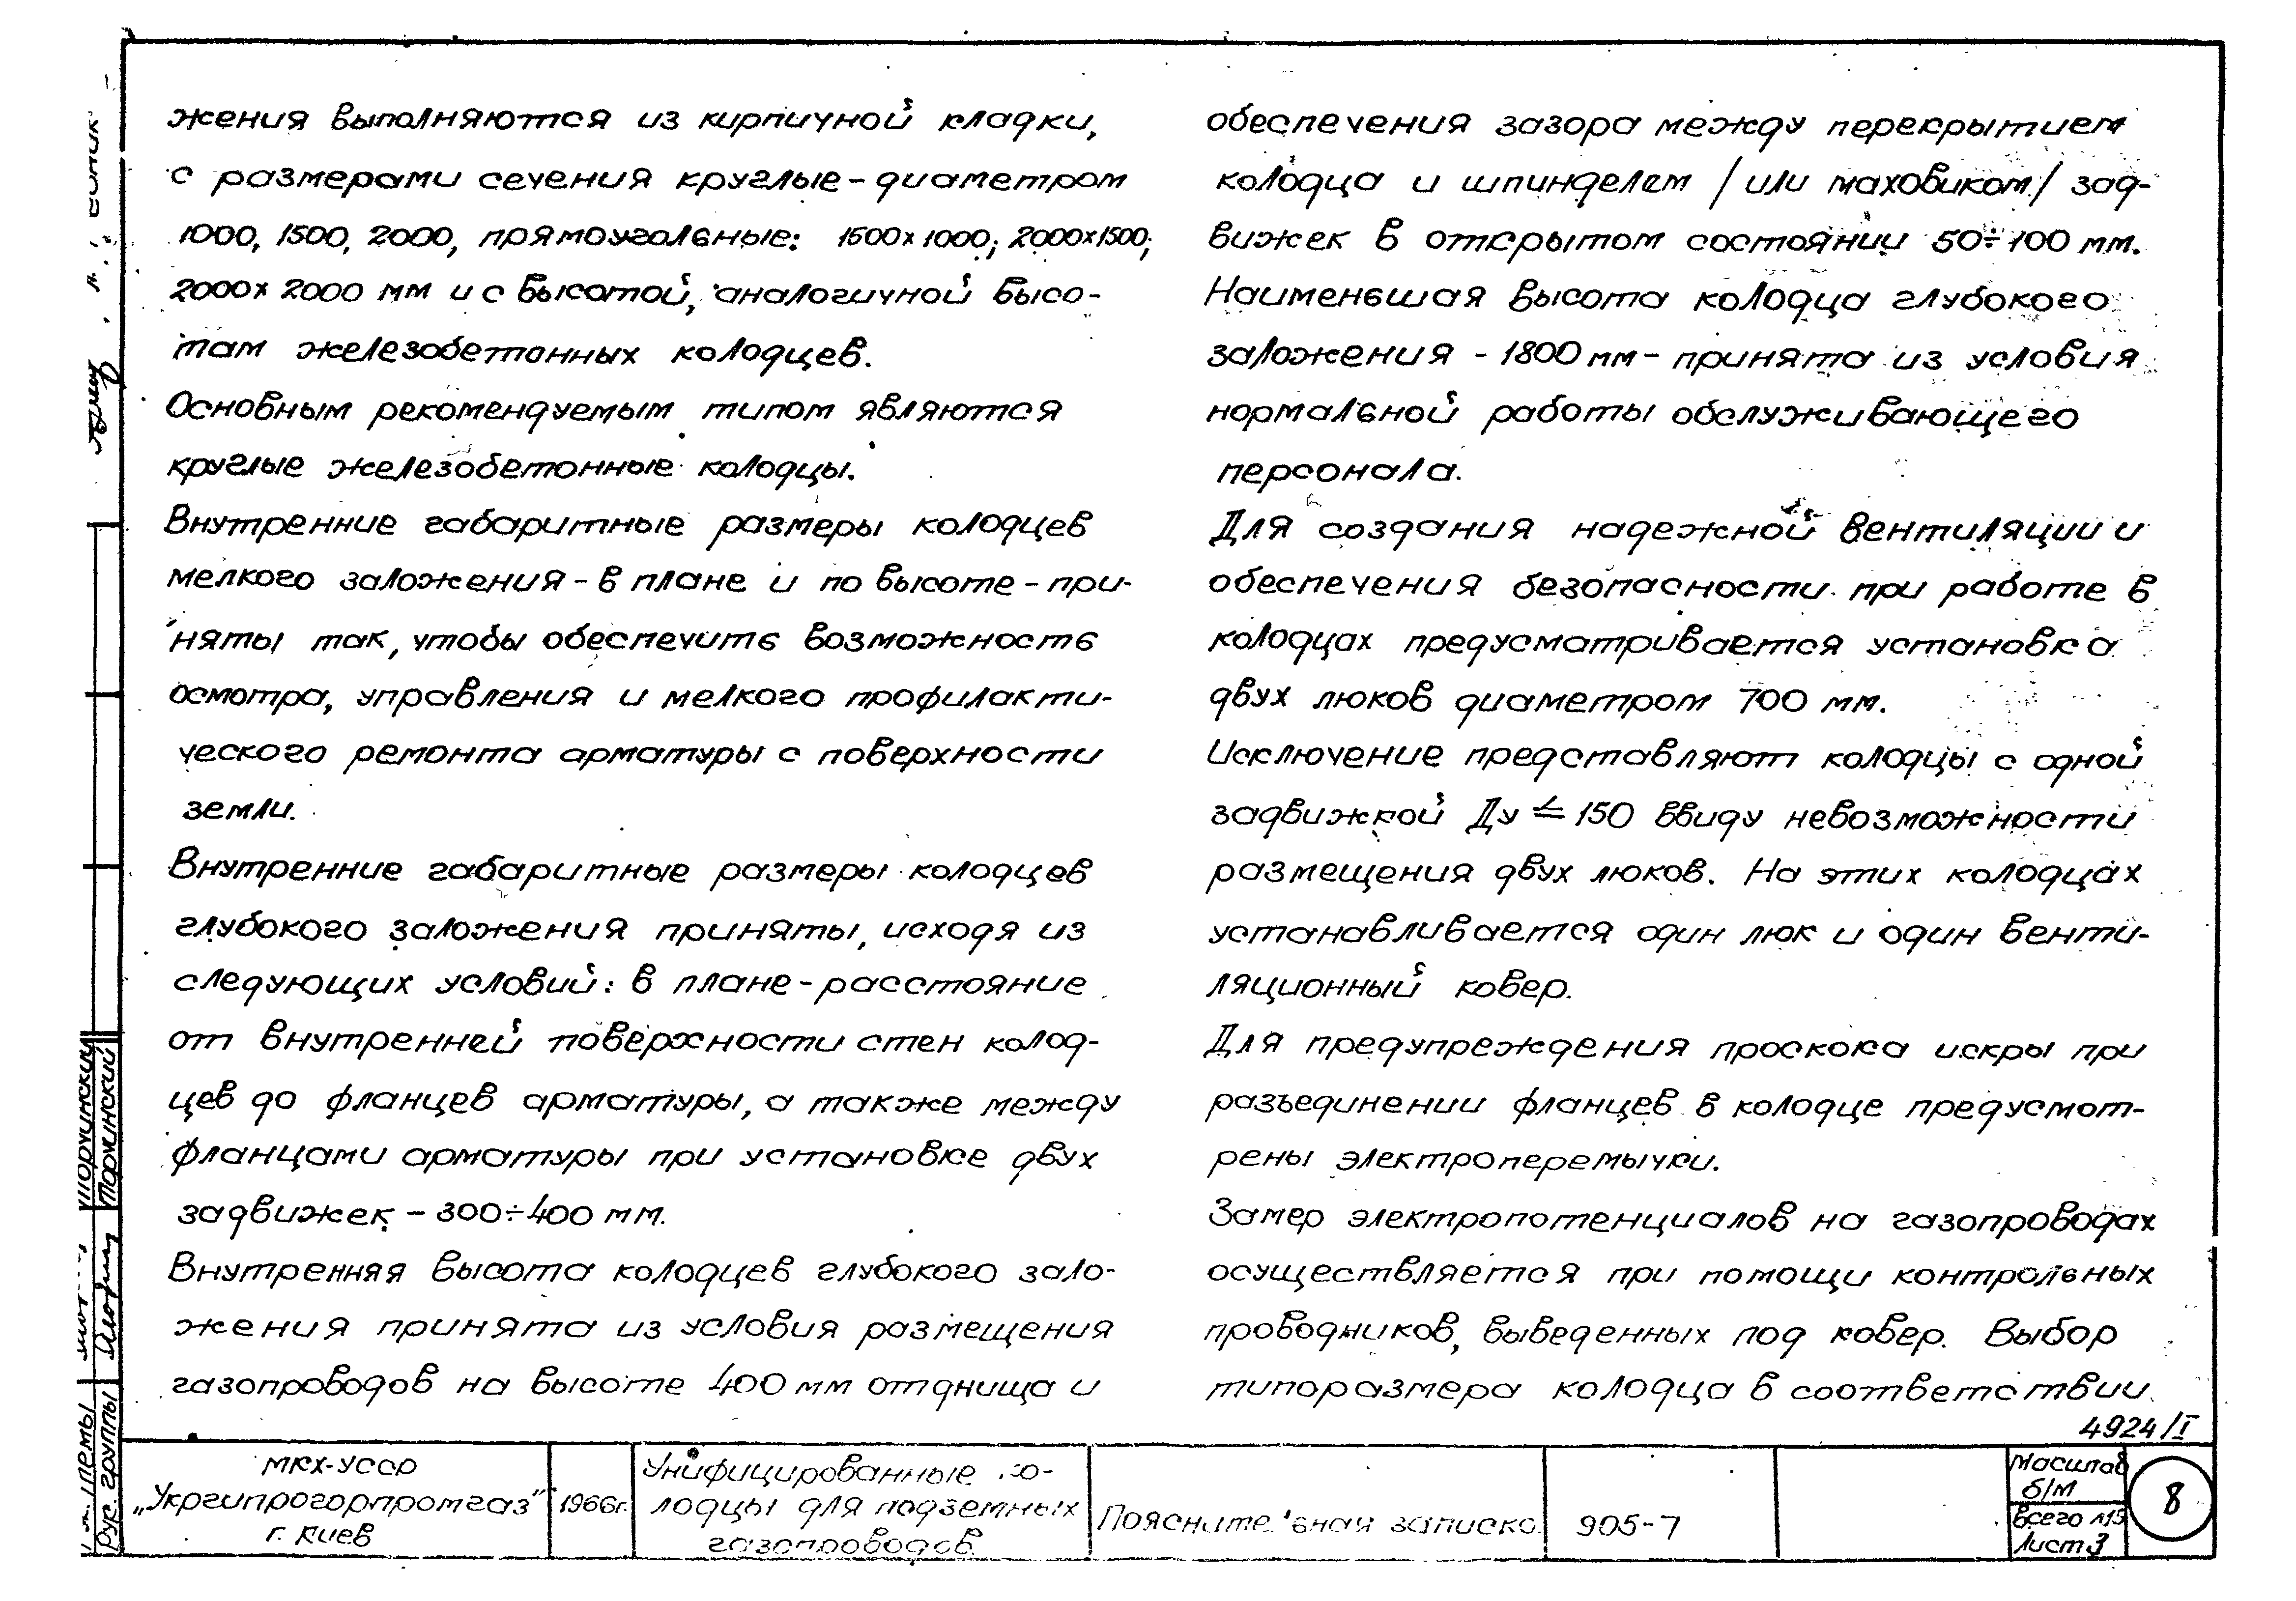 жения выполняются из кирпичной кладки,
с размерами сечения круглые - диаметром
1000, 1500, 2000, прямоугольные: 1500х1000; 2000х1500;
2000х2000 мм и с высотой, аналогичной высо-
там железобетонных колодцев.
Основным рекомендуемым типом являются
круглые железобетонные колодцы.
Внутренние габаритные размеры колодцев
мелкого заложения - в плане и по высоте - при-
няты так, чтобы обеспечить возможность
осмотра, управления и мелкого профилакти-
ческого ремонта арматуры с поверхности
земли.
Внутренние габаритные размеры колодцев
глубокого заложения приняты, исходя из
следующих условий: в плане - расстояние
от внутренней поверхности стен колод-
цев до фланцев арматуры, а также между
фланцами арматуры при установке двух
задвижек - 300÷400 мм.
Внутренняя высота колодцев глубокого зало-
жения принята из условия размещения
газопроводов на высоте 400 мм от днища и
обеспечения зазора между перекрытием
колодца и шпинделем /или маховиком/ зад-
вижек в открытом состоянии 50÷100 мм.
Наименьшая высота колодца глубокого
заложения - 1800 мм - принята из условия
нормальной работы обслуживающего
персонала.
Для создания надежной вентиляции и
обеспечения безопасности при работе в
колодцах предусматривается установка
двух люков диаметром 700 мм.
Исключение представляют колодцы с одной
задвижкой Ду ≤ 150 ввиду невозможности
размещения двух люков. На этих колодцах
устанавливается один люк и один венти-
ляционный ковер.
Для предупреждения проскока искры при
разъединении фланцев в колодце предусмот-
рены электроперемычки.
Замер электропотенциалов на газопроводах
осуществляется при помощи контрольных
проводников, выведенных под ковер. Выбор
типоразмера колодца в соответствии
4924/I
МКХ-УССР
„Укргипрогорпромгаз"
г. Киев
1966г.
Унифицированные ко-
лодцы для подземных
газопроводов
Пояснительная записка
905-7
Масштаб
б/м
Всего л15
Лист 3
8
Рук. группы
Порчинский